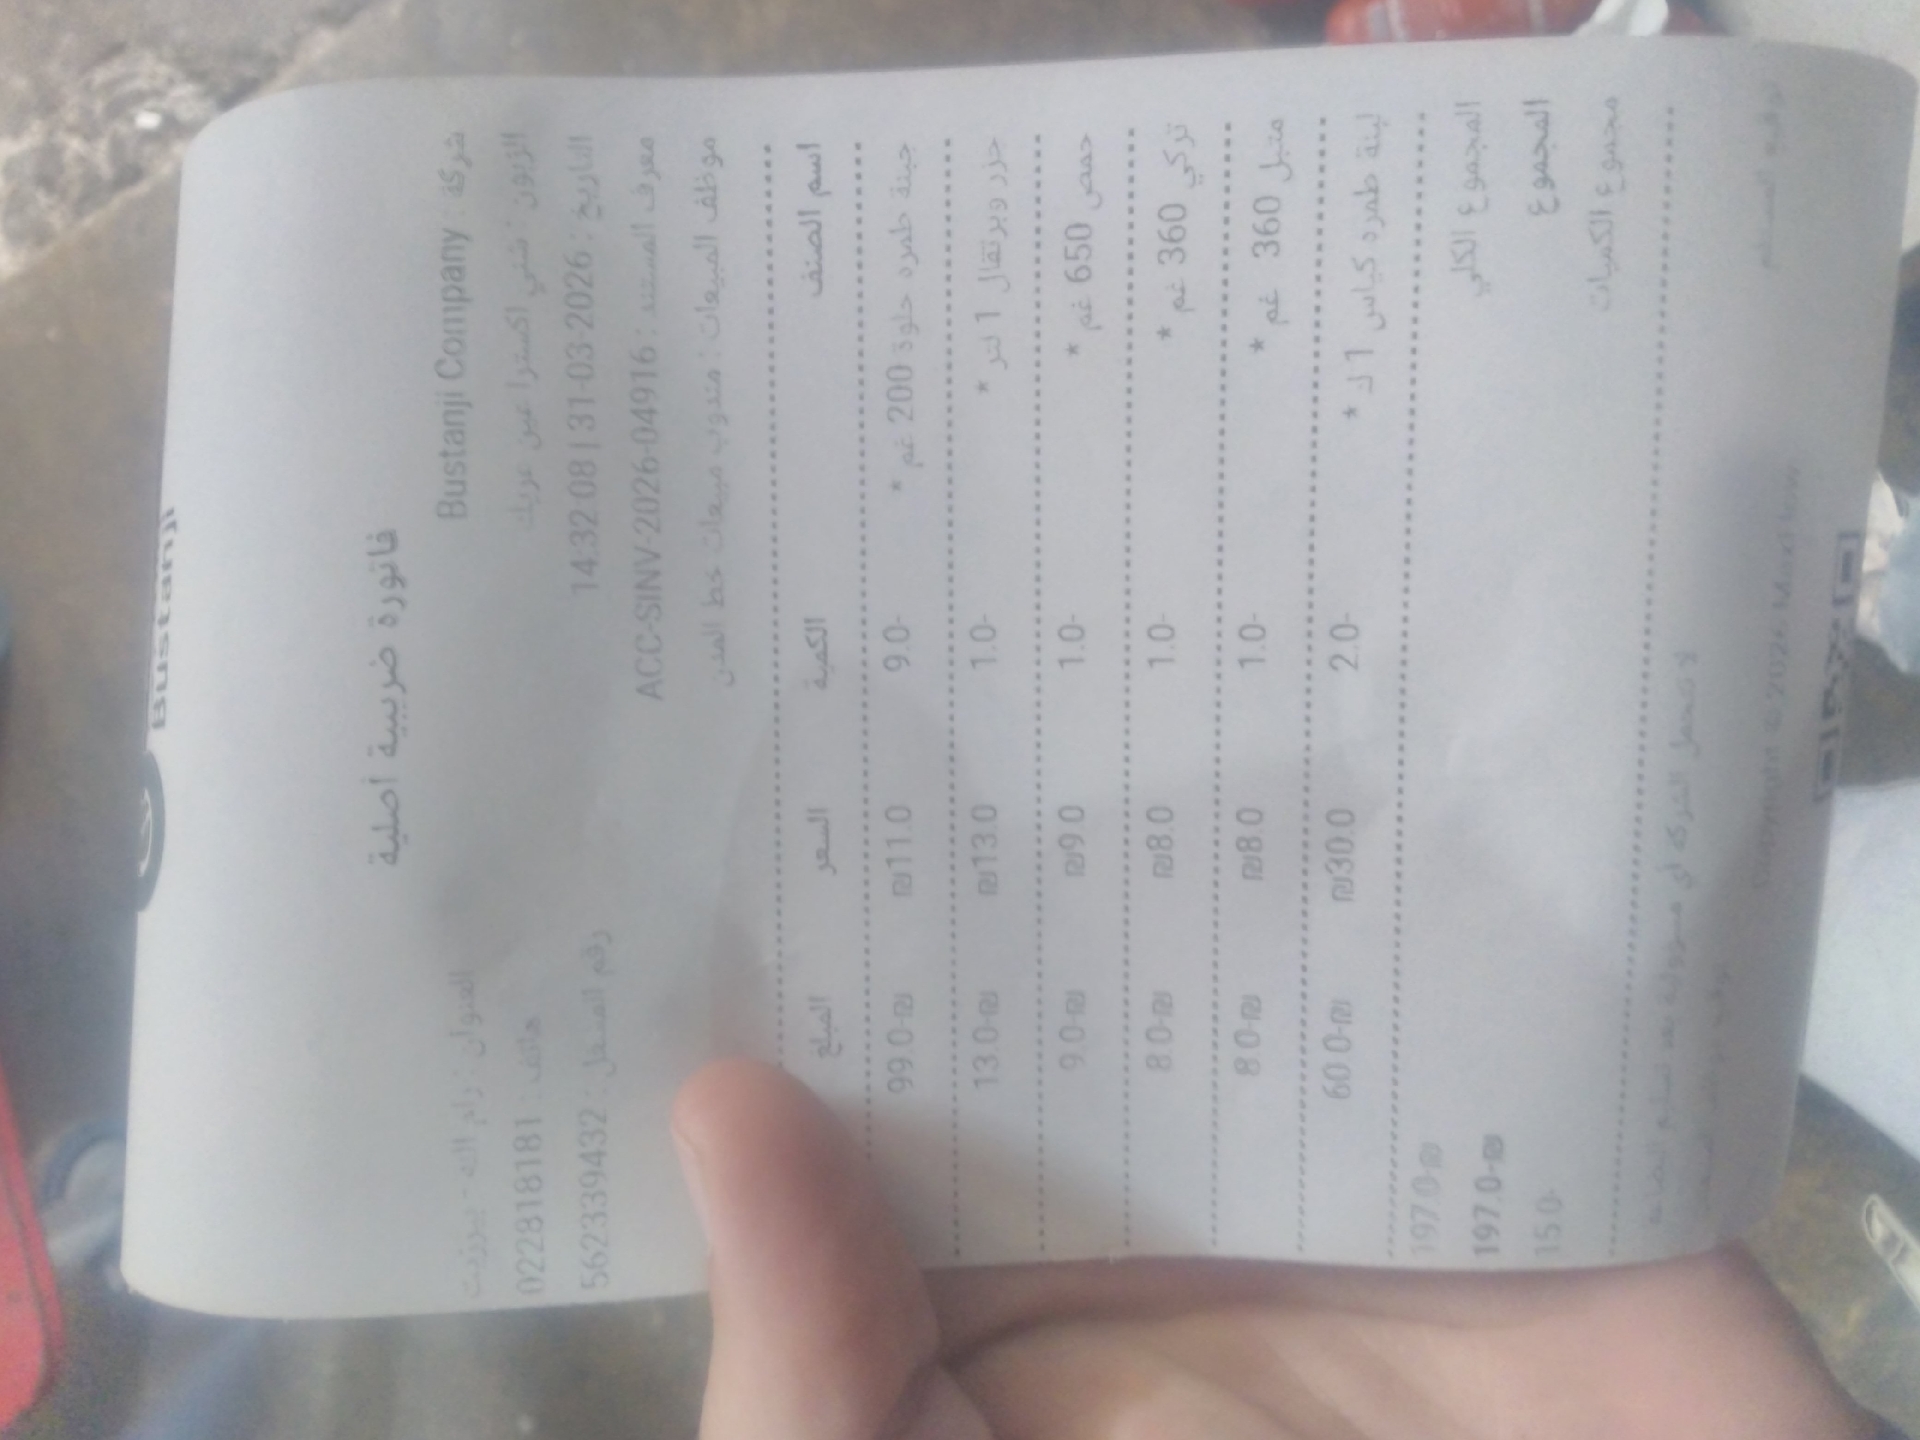 Bustanji
فاتورة ضريبية أصلية
شركة : Bustanji Company العنوان : رام الله - بيرزيت
الزبون : شني اكسترا عين عريك هاتف : 022818181
التاريخ : 2026-03-31 | 14:32:08 رقم المشتغل : 562339432
معرف المستند : ACC-SINV-2026-04916
موظف المبيعات : مندوب مبيعات خط المدن
اسم الصنف الكمية السعر المبلغ
جبنة طمره حلوة 200 غم * 9.0- ₪11.0 99.0-₪
جزر وبرتقال 1 لتر * 1.0- ₪13.0 13.0-₪
حمص 650 غم * 1.0- ₪9.0 9.0-₪
تركي 360 غم * 1.0- ₪8.0 8.0-₪
متبل 360 غم * 1.0- ₪8.0 8.0-₪
لبنة طمره كياس 1 ك * 2.0- ₪30.0 60.0-₪
المجموع الكلي 197.0-₪
المجموع 197.0-₪
مجموع الكميات 15.0-
لا تتحمل الشركة اي مسؤولية بعد تسليم البضاعة
توقيع المستلم
Copyright © 2026